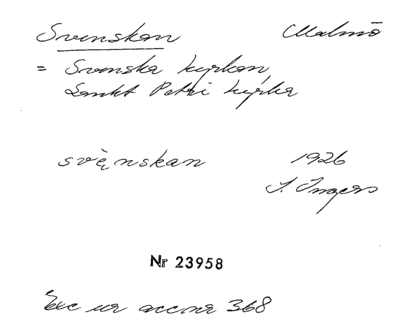 Svenskan Malmö
= Svenska kyrkan,
Sankt Petri kyrka
svęnskan 1926
I. Ingers
Nr 23958
Exc ur accnr 368